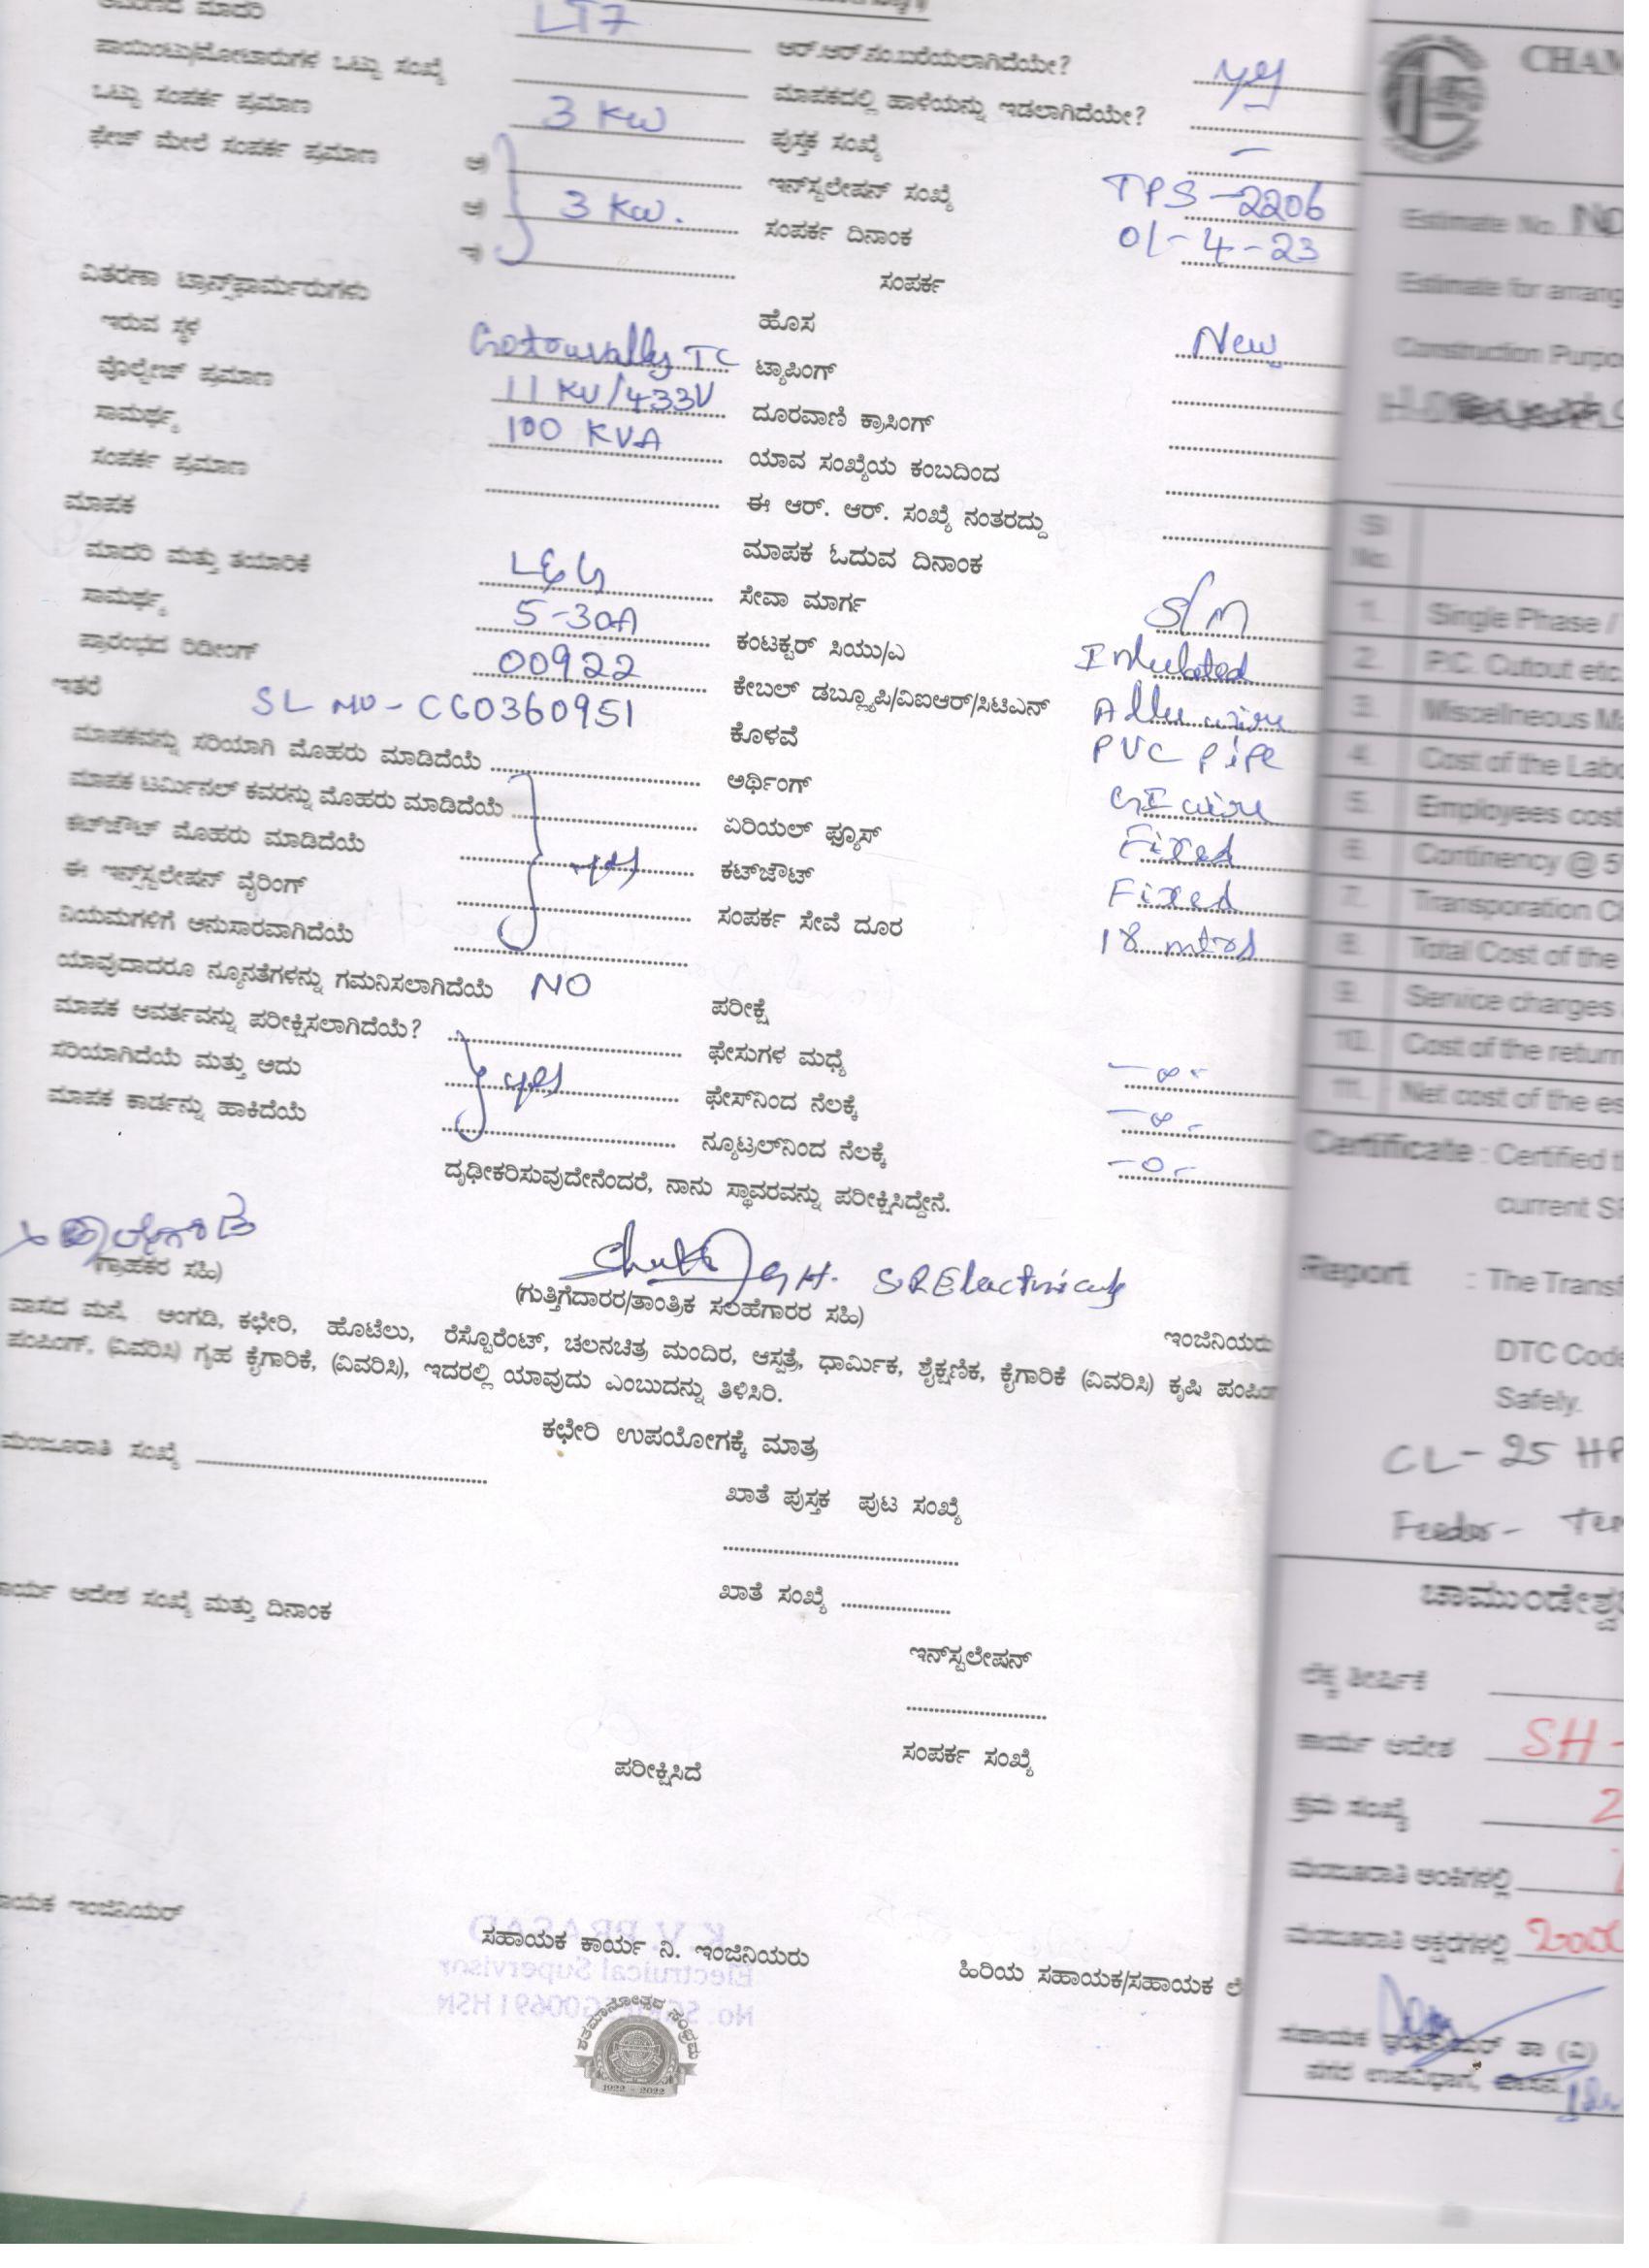 ಮಾದರಿ LT7
ಪಾಯಿಂಟು/ಮೋಟಾರುಗಳ ಒಟ್ಟು ಸಂಖ್ಯೆ ಆರ್.ಆರ್.ನಂ.ಬರೆಯಲಾಗಿದೆಯೇ?
ಒಟ್ಟು ಸಂಪರ್ಕ ಪ್ರಮಾಣ 3 KW ಮಾಪಕದಲ್ಲಿ ಹಾಳೆಯನ್ನು ಇಡಲಾಗಿದೆಯೇ?
ಫೇಜ್ ಮೇಲೆ ಸಂಪರ್ಕ ಪ್ರಮಾಣ ಅ) ಪುಸ್ತಕ ಸಂಖ್ಯೆ -
ಆ) 3 KW. ಇನ್‌ಸ್ಟಲೇಷನ್ ಸಂಖ್ಯೆ TPS-2206
ಇ) ಸಂಪರ್ಕ ದಿನಾಂಕ 01-4-23
ವಿತರಣಾ ಟ್ರಾನ್ಸ್‌ಫಾರ್ಮರುಗಳು ಸಂಪರ್ಕ
ಇರುವ ಸ್ಥಳ TC ಹೊಸ New
ವೊಲ್ಟೇಜ್ ಪ್ರಮಾಣ 11 KV/433V ಟ್ಯಾಪಿಂಗ್
ಸಾಮರ್ಥ್ಯ 100 KVA ದೂರವಾಣಿ ಕ್ರಾಸಿಂಗ್
ಸಂಪರ್ಕ ಪ್ರಮಾಣ ಯಾವ ಸಂಖ್ಯೆಯ ಕಂಬದಿಂದ
ಮಾಪಕ ಈ ಆರ್. ಆರ್. ಸಂಖ್ಯೆ ನಂತರದ್ದು
ಮಾಪಕ ಓದುವ ದಿನಾಂಕ
ಮಾದರಿ ಮತ್ತು ತಯಾರಿಕೆ L&G ಸೇವಾ ಮಾರ್ಗ S/M
ಸಾಮರ್ಥ್ಯ 5-30A ಕಂಟಕ್ಟರ್ ಸಿಯು/ಎ
ಪ್ರಾರಂಭದ ರಿಡೀಂಗ್ 00922 ಕೇಬಲ್ ಡಬ್ಲ್ಯೂಪಿ/ವಿಐಆರ್/ಸಿಟಿಎನ್ wire
ಇತರೆ SL NO-CG0360951 ಕೊಳವೆ PVC pipe
ಮಾಪಕವನ್ನು ಸರಿಯಾಗಿ ಮೊಹರು ಮಾಡಿದೆಯೆ ಅರ್ಥಿಂಗ್ GI wire
ಮಾಪಕ ಟರ್ಮಿನಲ್ ಕವರನ್ನು ಮೊಹರು ಮಾಡಿದೆಯೆ ಏರಿಯಲ್ ಫ್ಯೂಸ್ Fixed
ಕಟ್‌ಔಟ್ ಮೊಹರು ಮಾಡಿದೆಯೆ yes ಕಟ್‌ಔಟ್ Fixed
ಈ ಇನ್ಸ್‌ಸ್ಟಲೇಷನ್ ವೈರಿಂಗ್ ಸಂಪರ್ಕ ಸೇವೆ ದೂರ 18 mtrs
ನಿಯಮಗಳಿಗೆ ಅನುಸಾರವಾಗಿದೆಯೆ
ಯಾವುದಾದರೂ ನ್ಯೂನತೆಗಳನ್ನು ಗಮನಿಸಲಾಗಿದೆಯೆ NO ಪರೀಕ್ಷೆ
ಮಾಪಕ ಆವರ್ತವನ್ನು ಪರೀಕ್ಷಿಸಲಾಗಿದೆಯೆ? ಫೇಸುಗಳ ಮಧ್ಯೆ
ಸರಿಯಾಗಿದೆಯೆ ಮತ್ತು ಅದು yes ಫೇಸ್‌ನಿಂದ ನೆಲಕ್ಕೆ
ಮಾಪಕ ಕಾರ್ಡನ್ನು ಹಾಕಿದೆಯೆ ನ್ಯೂಟ್ರಲ್‌ನಿಂದ ನೆಲಕ್ಕೆ -0-
ದೃಢೀಕರಿಸುವುದೇನೆಂದರೆ, ನಾನು ಸ್ಥಾವರವನ್ನು ಪರೀಕ್ಷಿಸಿದ್ದೇನೆ.
SR Electricals
(ಗ್ರಾಹಕರ ಸಹಿ) (ಗುತ್ತಿಗೆದಾರರ/ತಾಂತ್ರಿಕ ಸಲಹೆಗಾರರ ಸಹಿ) ಇಂಜಿನಿಯರು
ವಾಸದ ಮನೆ, ಅಂಗಡಿ, ಕಛೇರಿ, ಹೊಟೆಲು, ರೆಸ್ಟೊರೆಂಟ್, ಚಲನಚಿತ್ರ ಮಂದಿರ, ಆಸ್ಪತ್ರೆ, ಧಾರ್ಮಿಕ, ಶೈಕ್ಷಣಿಕ, ಕೈಗಾರಿಕೆ (ವಿವರಿಸಿ) ಕೃಷಿ
ಪಂಪಿಂಗ್, (ವಿವರಿಸಿ) ಗೃಹ ಕೈಗಾರಿಕೆ, (ವಿವರಿಸಿ), ಇದರಲ್ಲಿ ಯಾವುದು ಎಂಬುದನ್ನು ತಿಳಿಸಿರಿ.
ಕಛೇರಿ ಉಪಯೋಗಕ್ಕೆ ಮಾತ್ರ
ಮಂಜೂರಾತಿ ಸಂಖ್ಯೆ
ಖಾತೆ ಪುಸ್ತಕ ಪುಟ ಸಂಖ್ಯೆ
ಆದೇಶ ಸಂಖ್ಯೆ ಮತ್ತು ದಿನಾಂಕ ಖಾತೆ ಸಂಖ್ಯೆ
ಇನ್‌ಸ್ಟಲೇಷನ್
ಪರೀಕ್ಷಿಸಿದೆ ಸಂಪರ್ಕ ಸಂಖ್ಯೆ
ಇಂಜಿನಿಯರ್ ಸಹಾಯಕ ಕಾರ್ಯ ನಿ. ಇಂಜಿನಿಯರು ಹಿರಿಯ ಸಹಾಯಕ/ಸಹಾಯಕ
ಶತಮಾನೋತ್ಸವ ಸಂಭ್ರಮ
1922 - 2022
CHAM
Estimate No.
Estimate for arrang
Construction Purpo
Sl No.
1. Single Phase /
2. P.C. Cutout etc.
3. Miscellneous Ma
4. Cost of the Labo
5. Employees cost
6. Continency @ 5
7. Transporation C
8. Total Cost of the
9. Service charges
10. Cost of the return
11. Net cost of the es
Certificate : Certified t
current SR
Report : The Transf
DTC Code
Safely.
CL-25 HP
Feeder-
ಚಾಮುಂಡೇಶ್ವ
ಲೆಕ್ಕ ಶೀರ್ಷಿಕೆ
ಕಾರ್ಯ ಆದೇಶ SH-
ಕ್ರಮ ಸಂಖ್ಯೆ 2
ಮಂಜೂರಾತಿ ಅಂಕಿಗಳಲ್ಲಿ
ಮಂಜೂರಾತಿ ಅಕ್ಷರಗಳಲ್ಲಿ
ಸಹಾಯಕ ಇಂಜಿನಿಯರ್ ತಾ (ವಿ)
ನಗರ ಉಪವಿಭಾಗ, ಹಾಸನ.